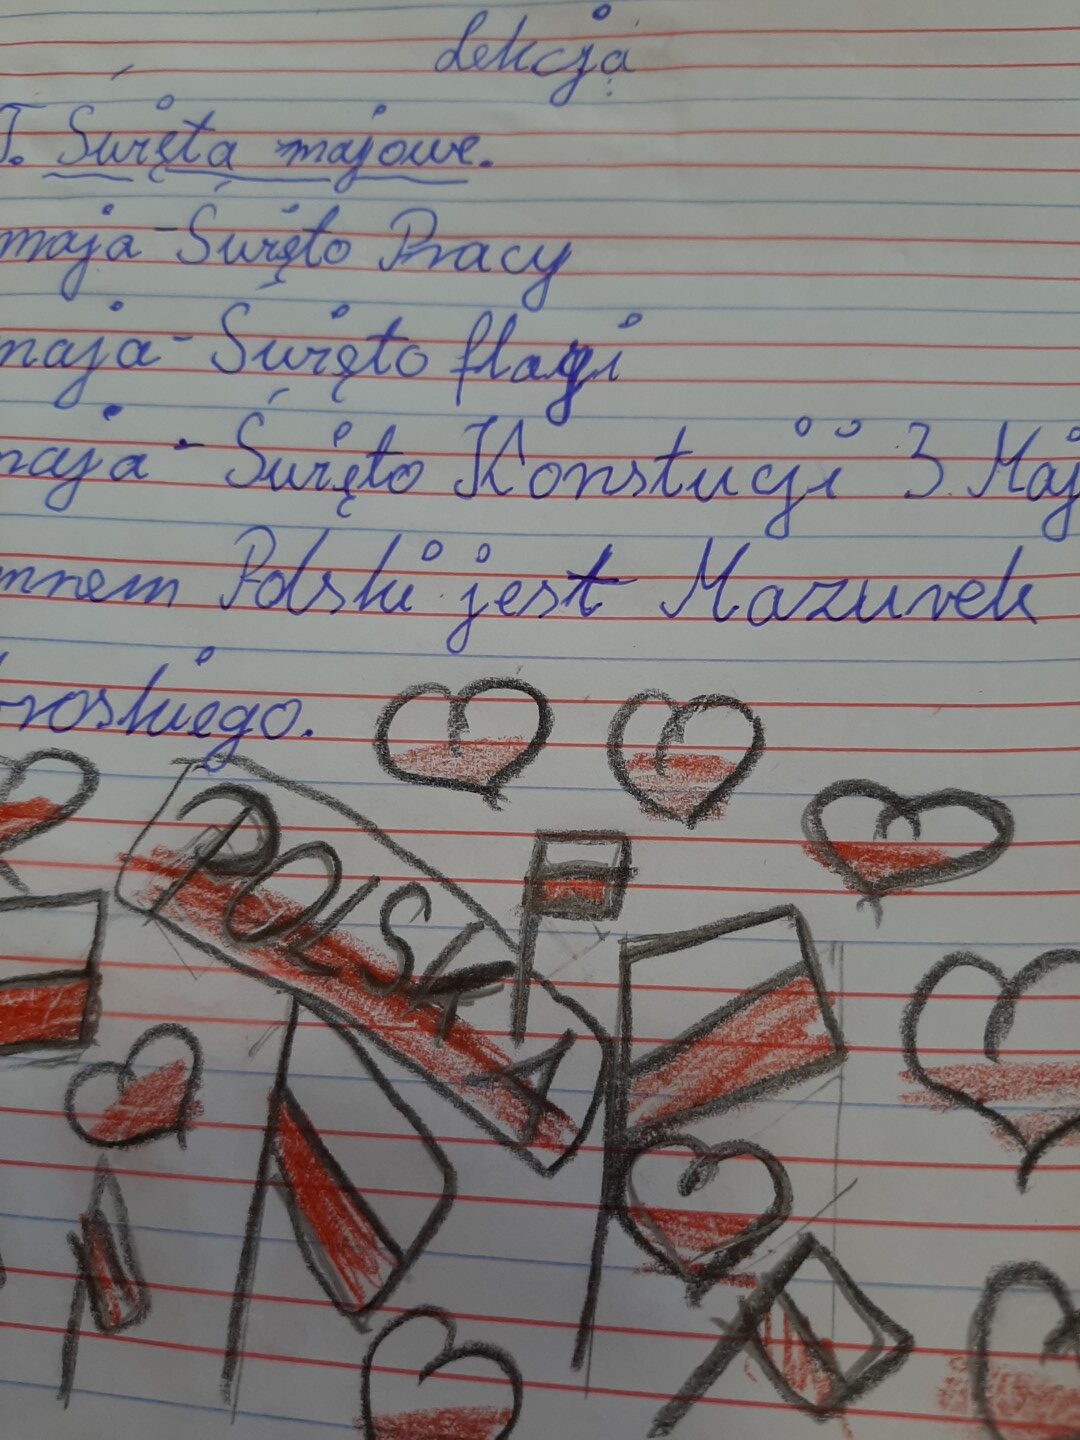 Lekcja
T. Święta majowe.
maja - Święto Pracy
maja - Święto flagi
maja - Święto Konstucji 3 Maj
mnem Polski jest Mazurek
roskiego.
POLSKA